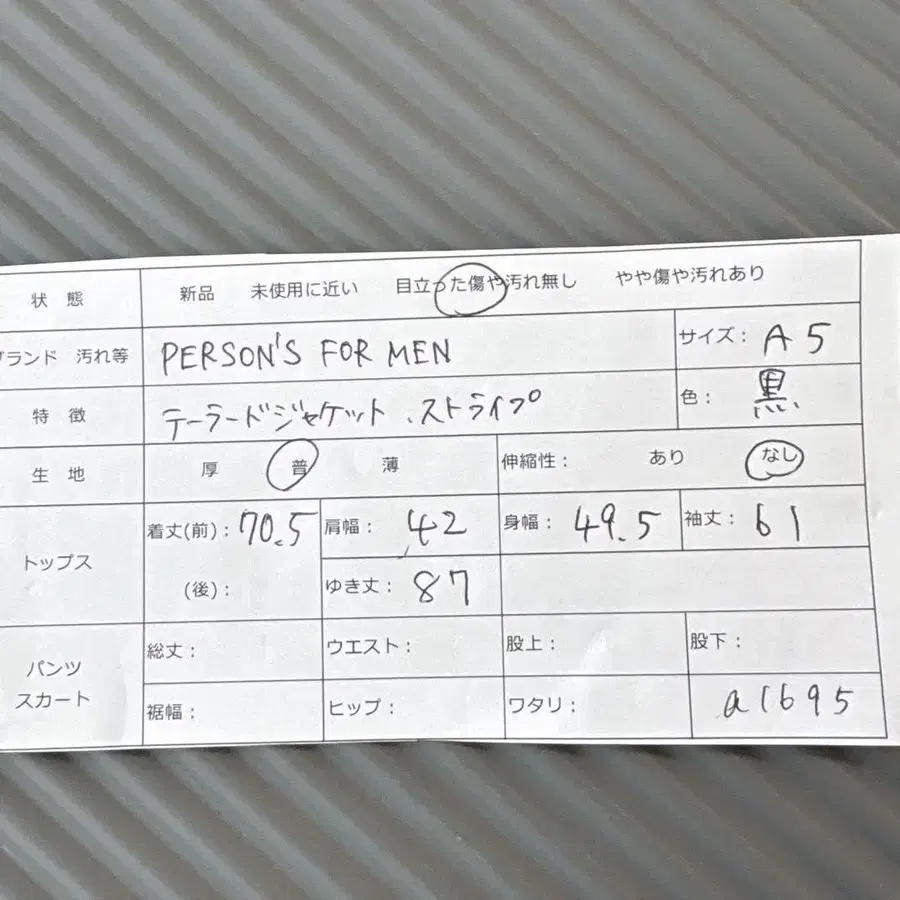 状態 新品 未使用に近い 目立った傷や汚れ無し やや傷や汚れあり
ブランド 汚れ等 PERSON'S FOR MEN サイズ: A5
特徴 テーラードジャケット、ストライプ 色: 黒
生地 厚 普 薄 伸縮性: あり なし
トップス 着丈(前): 70.5 肩幅: 42 身幅: 49.5 袖丈: 61
(後): ゆき丈: 87
パンツ スカート 総丈: ウエスト: 股上: 股下:
裾幅: ヒップ: ワタリ: a1695